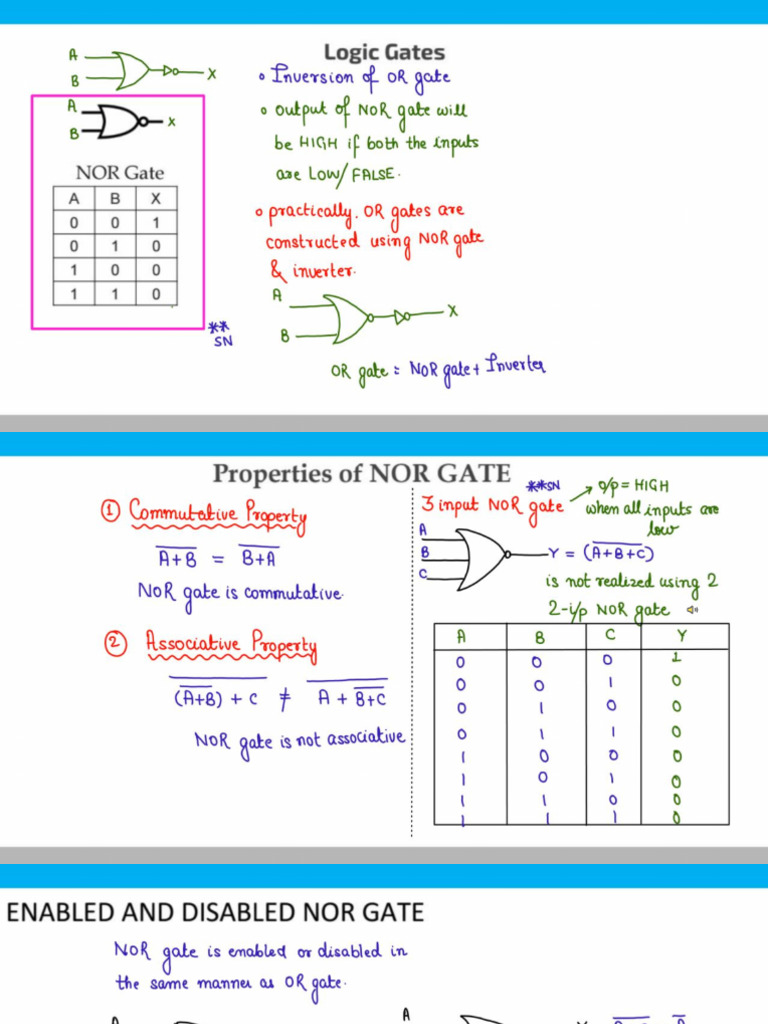 Logic Gates
A
B
X
• Inversion of OR gate
A
B
X
• output of NOR gate will
be HIGH if both the inputs
are LOW/FALSE.
NOR Gate
A B X
0 0 1
0 1 0
1 0 0
1 1 0
• practically. OR gates are
constructed using NOR gate
& inverter.
**
SN
A
B
X
OR gate = NOR gate + Inverter
Properties of NOR GATE
① Commutative Property
A̅+̅B̅ = B̅+̅A̅
NOR gate is commutative.
② Associative Property
(̅A̅+̅B̅)̅ ̅+̅ ̅C̅ ≠ A̅ ̅+̅ ̅B̅+̅C̅
NOR gate is not associative
**SN
3 input NOR gate → o/p = HIGH
when all inputs are
low
A
B
C
Y = (A̅+̅B̅+̅C̅)
is not realized using 2
2-i/p NOR gate
A B C Y
0 0 0 1
0 0 1 0
0 1 0 0
0 1 1 0
1 0 0 0
1 0 1 0
1 1 0 0
1 1 1 0
ENABLED AND DISABLED NOR GATE
NOR gate is enabled or disabled in
the same manner as OR gate.
A